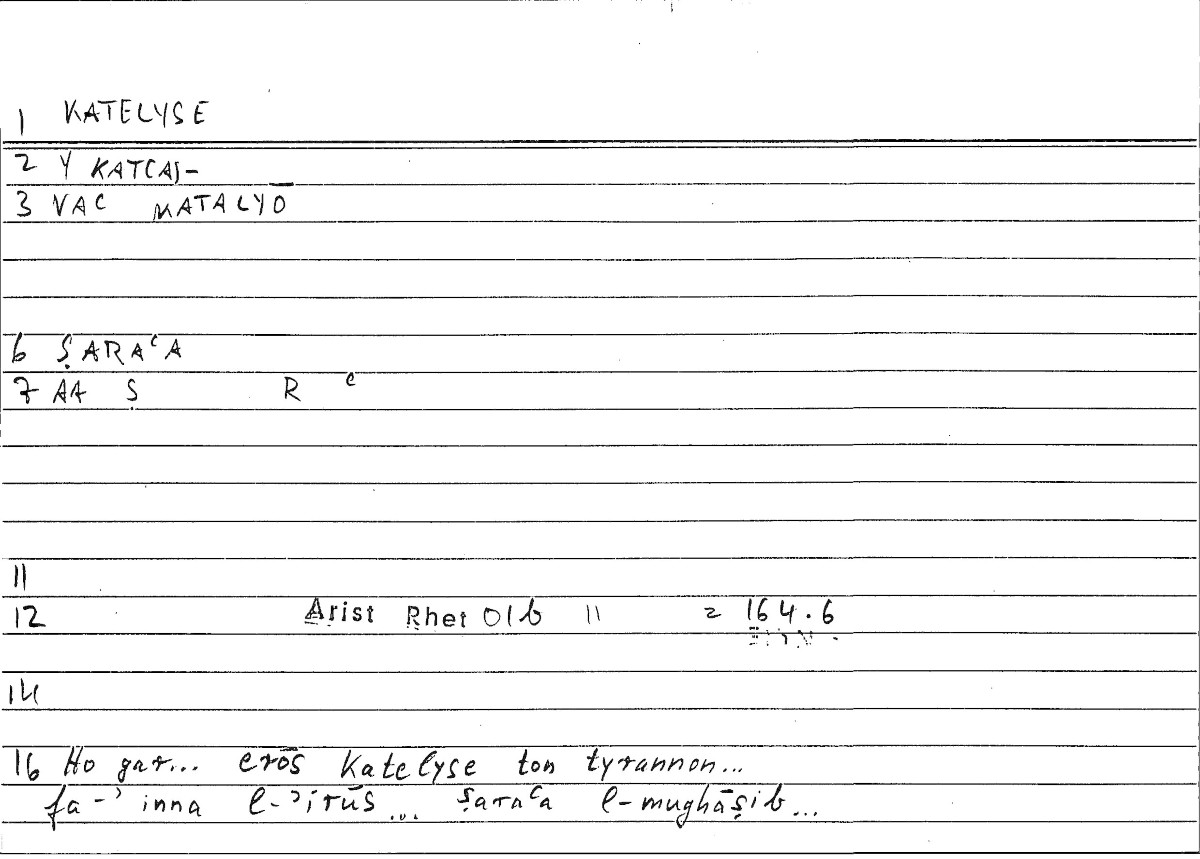 1 KATELYSE
2 Y KAT(A)-
3 VAC KATALYŌ
6 ṢARAᶜA
7 AA Ṣ R ᶜ
11
12 Arist Rhet 01b 11 = 164.6
14
16 Ho gar... erōs katelyse ton tyrannon...
fa-ʾinna l-ʾirūs... ṣaraᶜa l-mughāṣib...